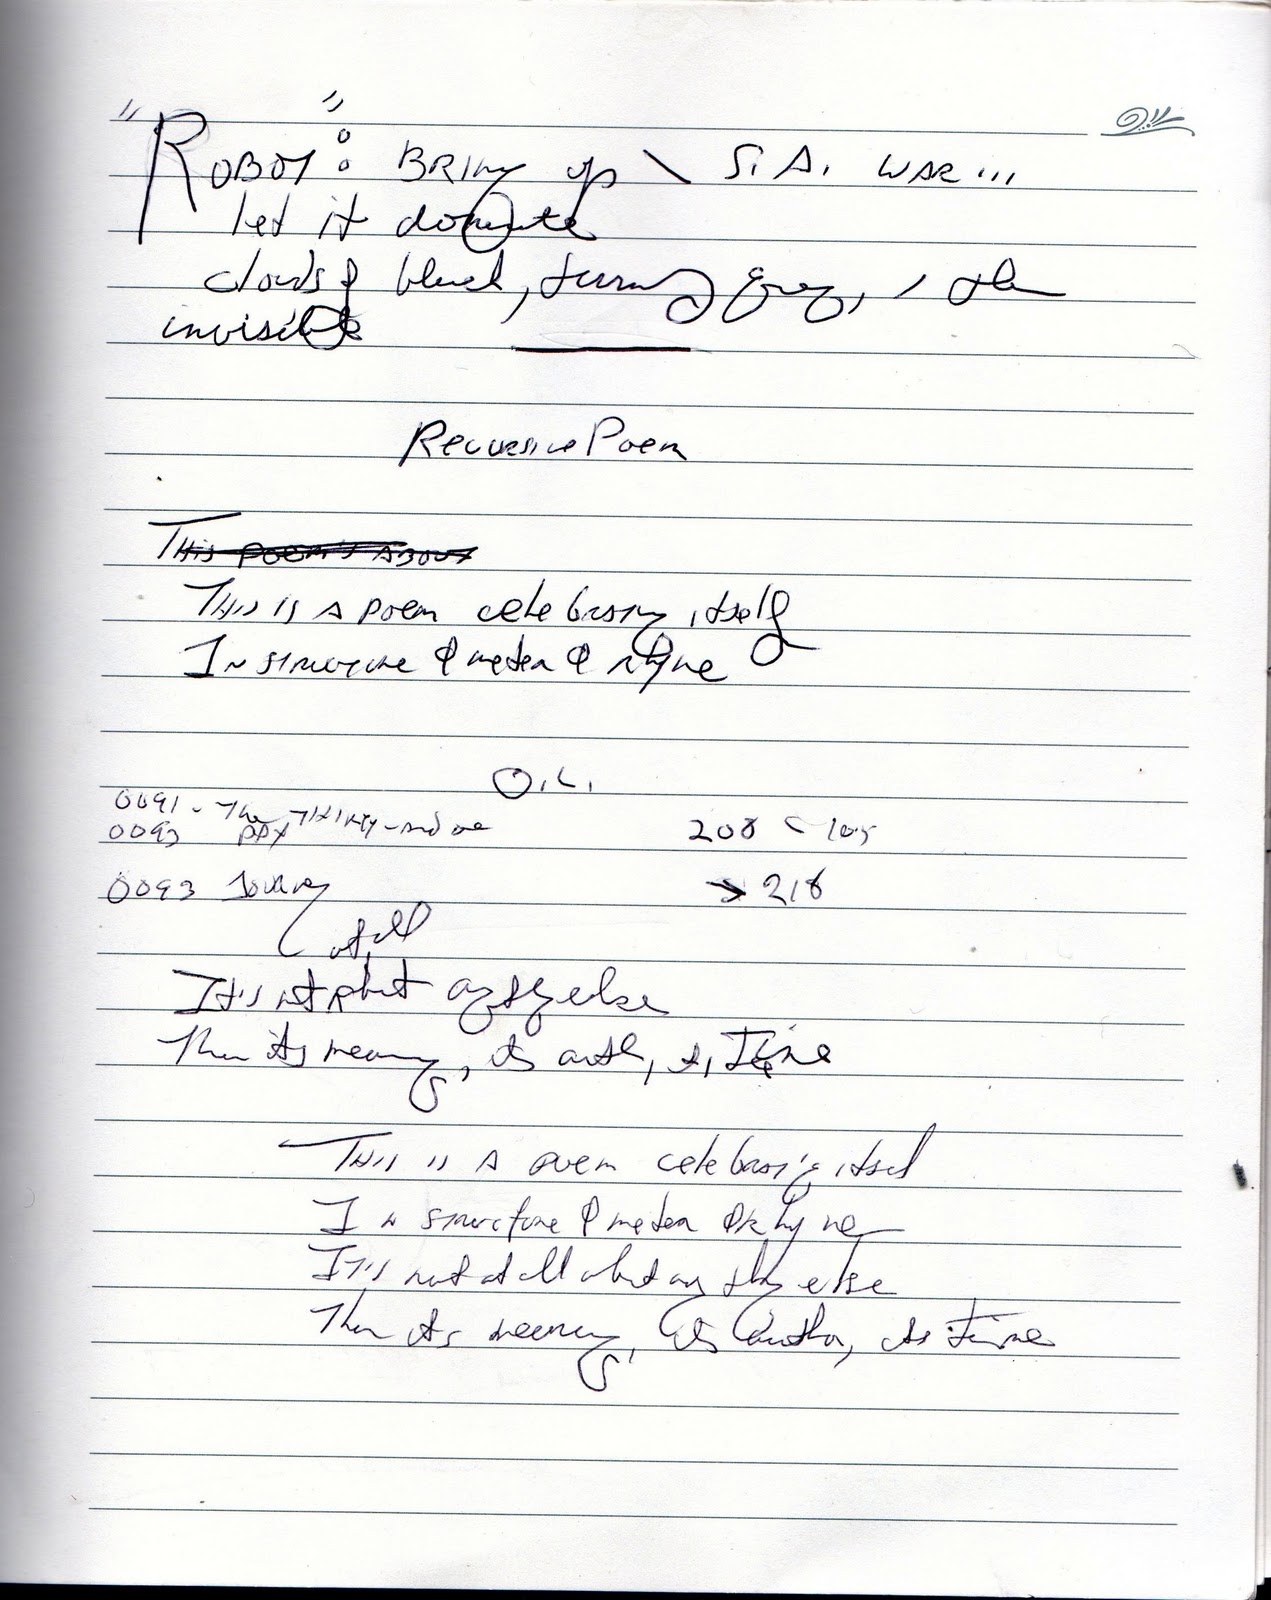 "Robot": Bring up \ S.A. WAR...
let it dominate
clouds of black, turning grey, / then
invisible
Recursive Poem
This poem's about
This is a poem celebrating itself
In structure & meter & rhyme
O.L.
0091 - The Thirty-and one
0093 PDX
208
0093 Journey
→ 218
at all
It's not about anything else
Than its meaning, its author, its Time
This is a poem celebrating itself
In structure & meter & rhyme
It's not at all about anything else
Than its meaning, its author, its time